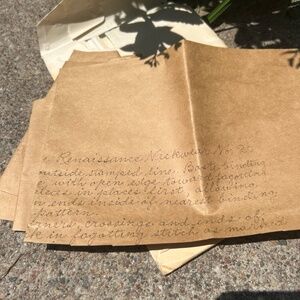 Renaissance Neckwear No. 25
outside stamped line. Baste binding
with open edge toward fagoting
places in places first, allowing
n ends inside of nearest binding,
pattern.
ners, crossings and ends, of
k in fagoting stitch as marked